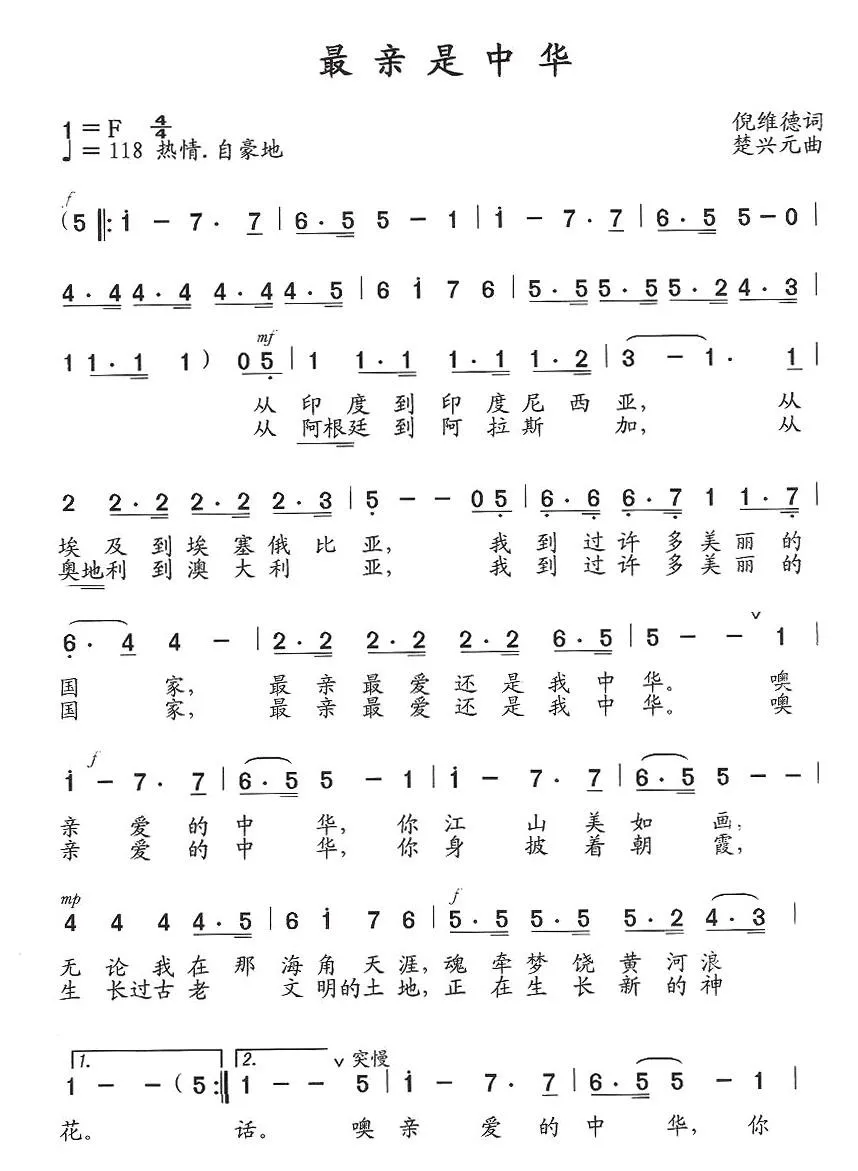 最亲是中华
1=F 4/4
♩=118 热情.自豪地
倪维德词
楚兴元曲
f
(5 ‖: i - 7· 7 | 6·5 5 - 1 | i - 7· 7 | 6·5 5-0 |
4·4 4·4 4·4 4·5 | 6 i 7 6 | 5·5 5·5 5·2 4·3 |
mf
1 1·1 1) 0 5 | 1 1·1 1·1 1·2 | 3 - 1· 1 |
从印度到印度尼西亚, 从
从阿根廷到阿拉斯加, 从
2 2·2 2·2 2·3 | 5 - - 0 5 | 6·6 6·7 1 1·7 |
埃及到埃塞俄比亚, 我到过许多美丽的
奥地利到澳大利亚, 我到过许多美丽的
6· 4 4 - | 2·2 2·2 2·2 6·5 | 5 - - ∨ 1 |
国家, 最亲最爱还是我中华。 噢
国家, 最亲最爱还是我中华。 噢
f
i - 7· 7 | 6·5 5 - 1 | i - 7· 7 | 6·5 5 - - |
亲爱的中华, 你江山美如画;
亲爱的中华, 你身披着朝霞,
mp f
4 4 4 4·5 | 6 i 7 6 | 5·5 5·5 5·2 4·3 |
无论我在那海角天涯, 魂牵梦饶黄河浪
生长过古老文明的土地, 正在生长新的神
1. 2. ∨ 突慢
1 - - (5 :‖ 1 - - 5 | i - 7· 7 | 6·5 5 - 1 |
花。 话。 噢亲爱的中华, 你